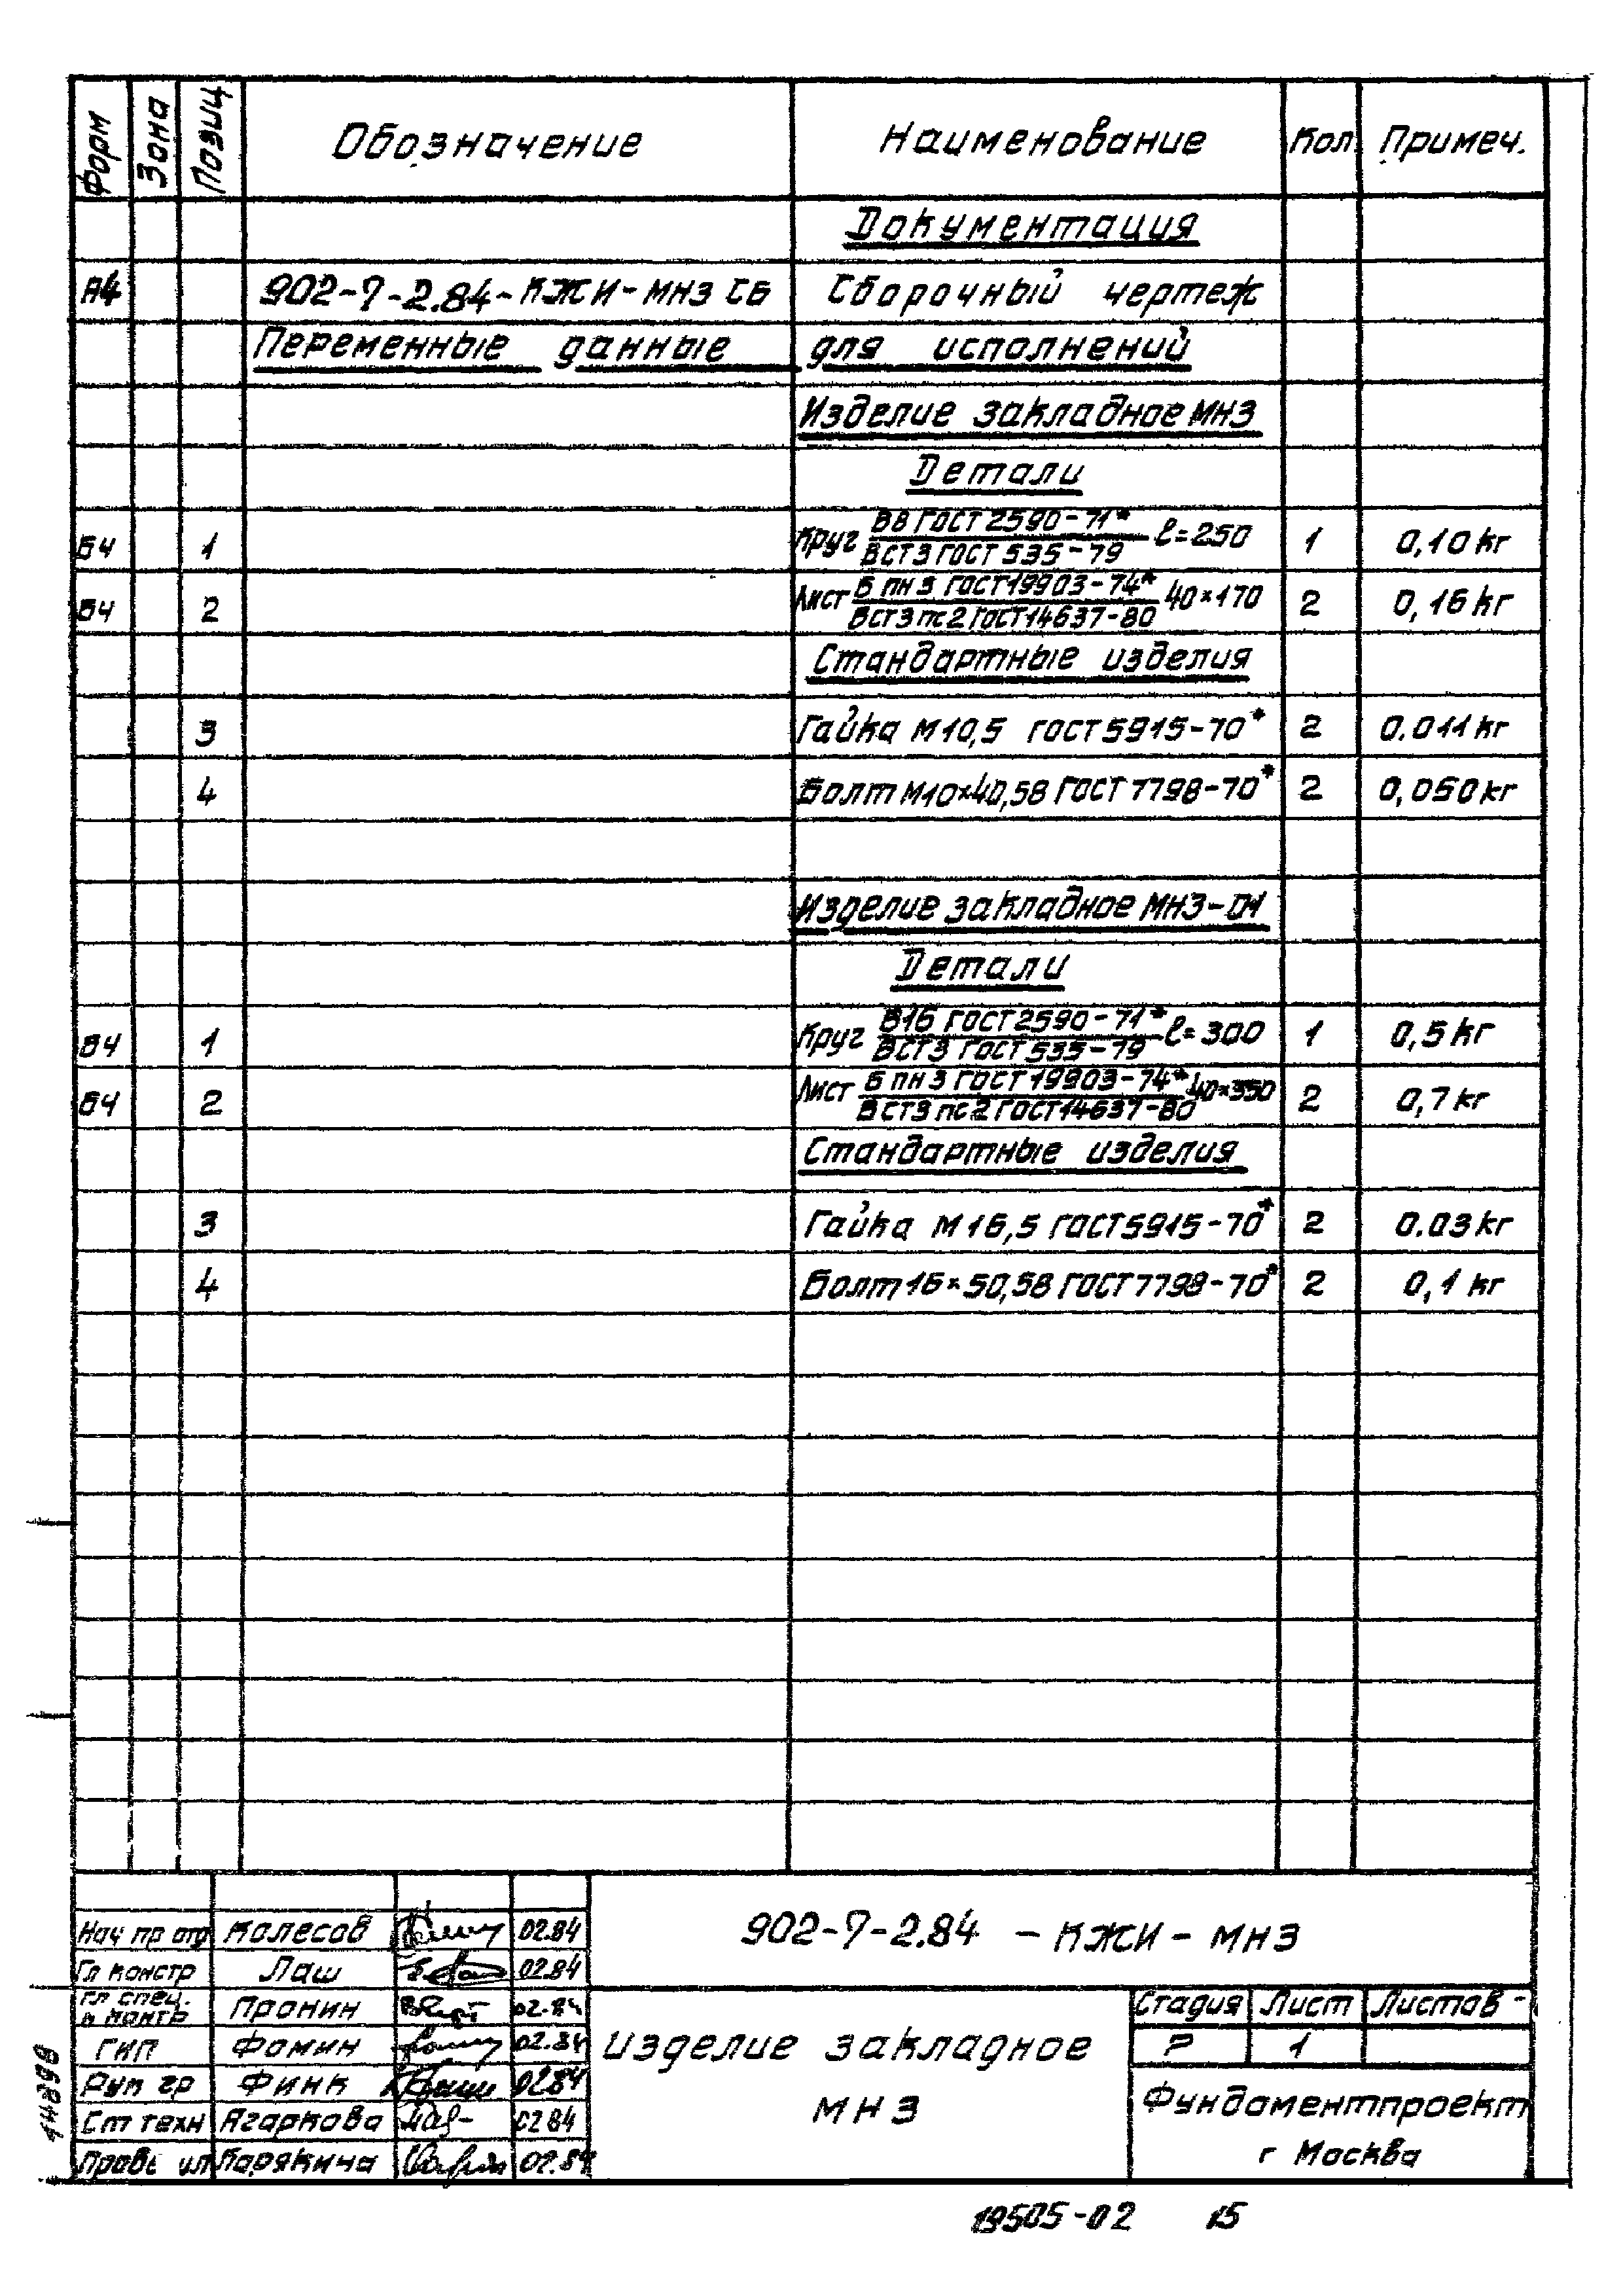 Форм Зона Позиц Обозначение Наименование Кол Примеч.
Документация
А4 902-7-2.84-КЖИ-МН3 СБ Сборочный чертеж
Переменные данные для исполнений
Изделие закладное МН3
Детали
БЧ 1 Круг В8 ГОСТ 2590-71* ℓ=250 1 0,10 кг
ВСТ3 ГОСТ 535-79
БЧ 2 Лист Б ПН 3 ГОСТ 19903-74* 40×170 2 0,16 кг
ВСТ3 пс 2 ГОСТ 14637-80
Стандартные изделия
3 Гайка М10,5 ГОСТ 5915-70* 2 0.011 кг
4 Болт М10×40,58 ГОСТ 7798-70* 2 0,050 кг
Изделие закладное МН3-01
Детали
БЧ 1 Круг В16 ГОСТ 2590-71* ℓ=300 1 0,5 кг
ВСТ3 ГОСТ 535-79
БЧ 2 Лист Б ПН 3 ГОСТ 19903-74* 40×350 2 0,7 кг
ВСТ3 пс 2 ГОСТ 14637-80
Стандартные изделия
3 Гайка М16,5 ГОСТ 5915-70* 2 0.03 кг
4 Болт 16×50,58 ГОСТ 7798-70* 2 0,1 кг
Нач пр отд Колесов 02.84
902-7-2.84 - КЖИ - МН3
Гл констр Лаш 02.84
Гл спец.
н контр Пронин 02.84
Стадия Лист Листов -
ГИП Фомин 02.84
Р 1
изделие закладное
МН3
Рук гр Финк 0284
Ст техн Агаркова 0284
Фундаментпроект
г Москва
Карякина 02.84
14898
19505-02 15